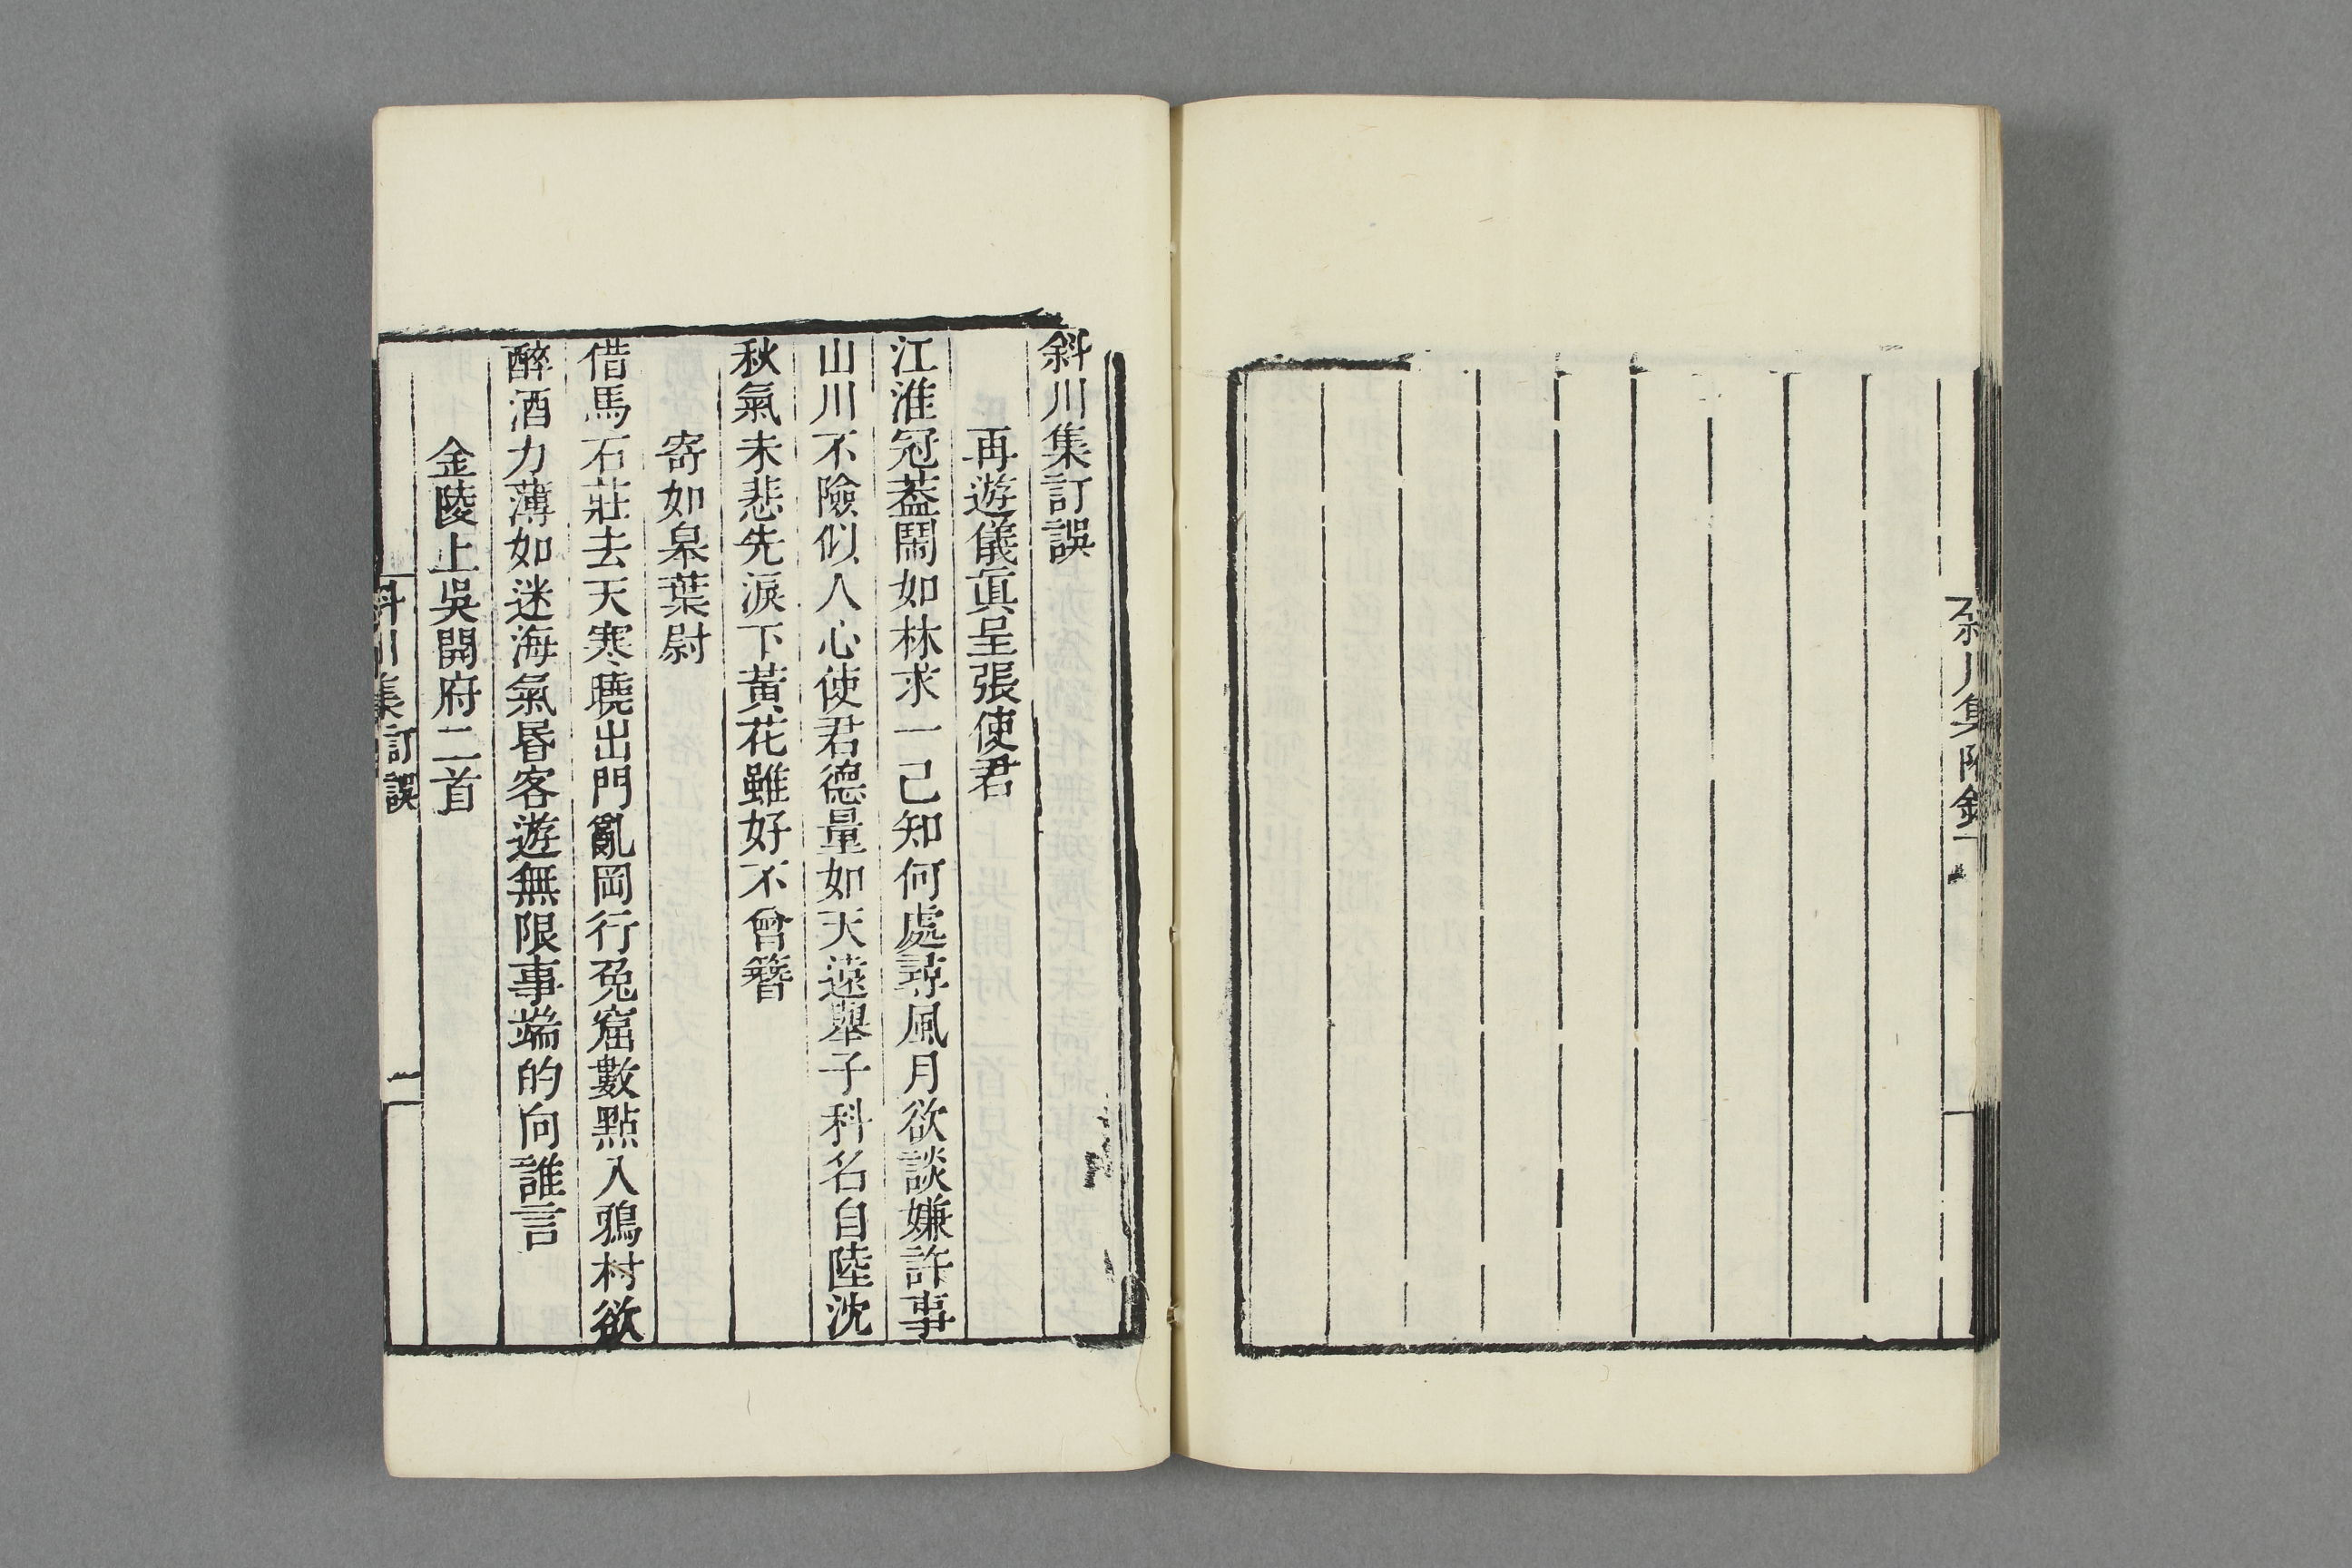 斜川集附錄
斜川集訂誤
再遊儀眞呈張使君
江淮冠葢鬧如林求一己知何處尋風月欲談嫌許事
山川不險似人心使君德量如天遠舉子科名自陸沈
秋氣未悲先淚下黃花雖好不曾簪
寄如皋葉尉
借馬石莊去天寒曉出門亂岡行兔窟數點入鴉村欲
醉酒力薄如迷海氣昬客遊無限事端的向誰言
金陵上吳開府二首
斜川集訂誤
一